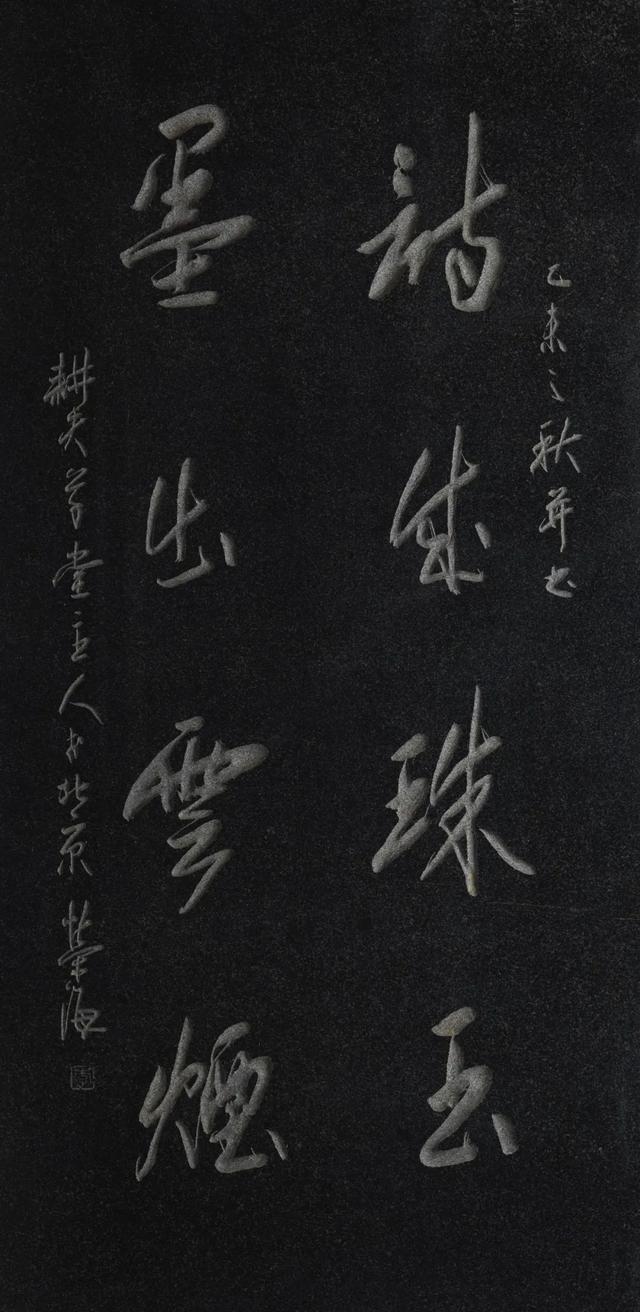 乙未之秋并书
詩成珠玉
墨出雲煙
耕夫草堂主人书北京 榮海